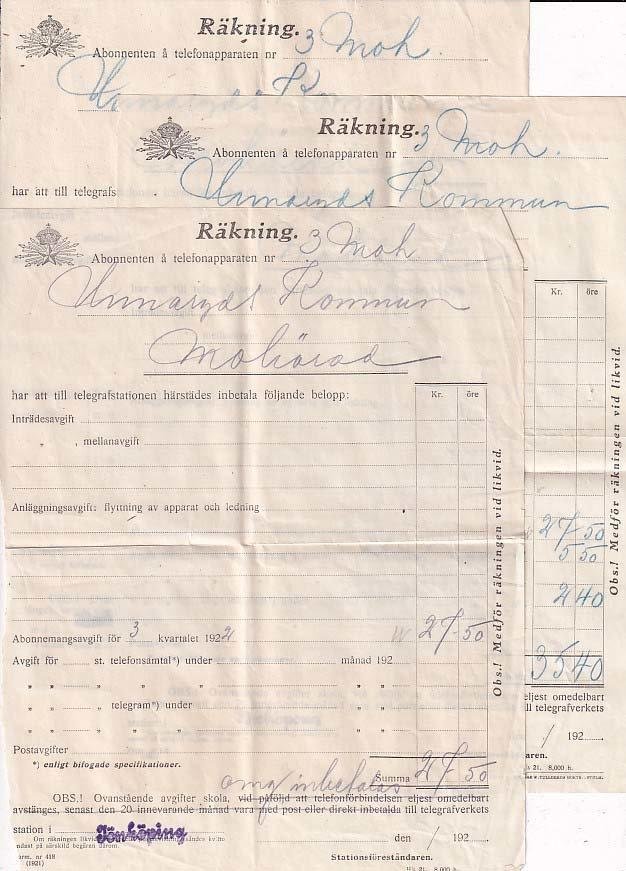 Räkning.
Abonnenten å telefonapparaten nr 3 Moh.
Unnaryds Kommun
Räkning.
Abonnenten å telefonapparaten nr 3 Moh.
har att till telegrafs Unnaryds Kommun
Räkning.
Abonnenten å telefonapparaten nr 3 Moh
Unnaryds Kommun
har att till telegrafstationen härstädes inbetala följande belopp:
Kr. öre
Inträdesavgift
„ , mellanavgift
Anläggningsavgift: flyttning av apparat och ledning
Abonnemangsavgift för 3 kvartalet 1922 27-50
Avgift för st. telefonsamtal*) under månad 192
„ „ „ „ „ „
„ „ telegram*) under „ „
„ „ „ „ „ „
Postavgifter
*) enligt bifogade specifikationer.
Summa 27-50
omg inbetalas
OBS.! Ovanstående avgifter skola, vid påföljd att telefonförbindelsen eljest omedelbart
avstänges, senast den 20 innevarande månad vara med post eller direkt inbetalda till telegrafverkets
station i Jönköping den / 192
Om räkningen
endast på särskild begäran därom.
arm. nr 418
(1921)
Stationsföreståndaren.
21. 8,000 h.
Obs.! Medför räkningen vid likvid.
Kr. öre
27-50
5 50
2 40
35 40
eljest omedelbart
ill telegrafverkets
/ 192
daren.
21. 8,000 h.
Obs.! Medför räkningen vid likvid.